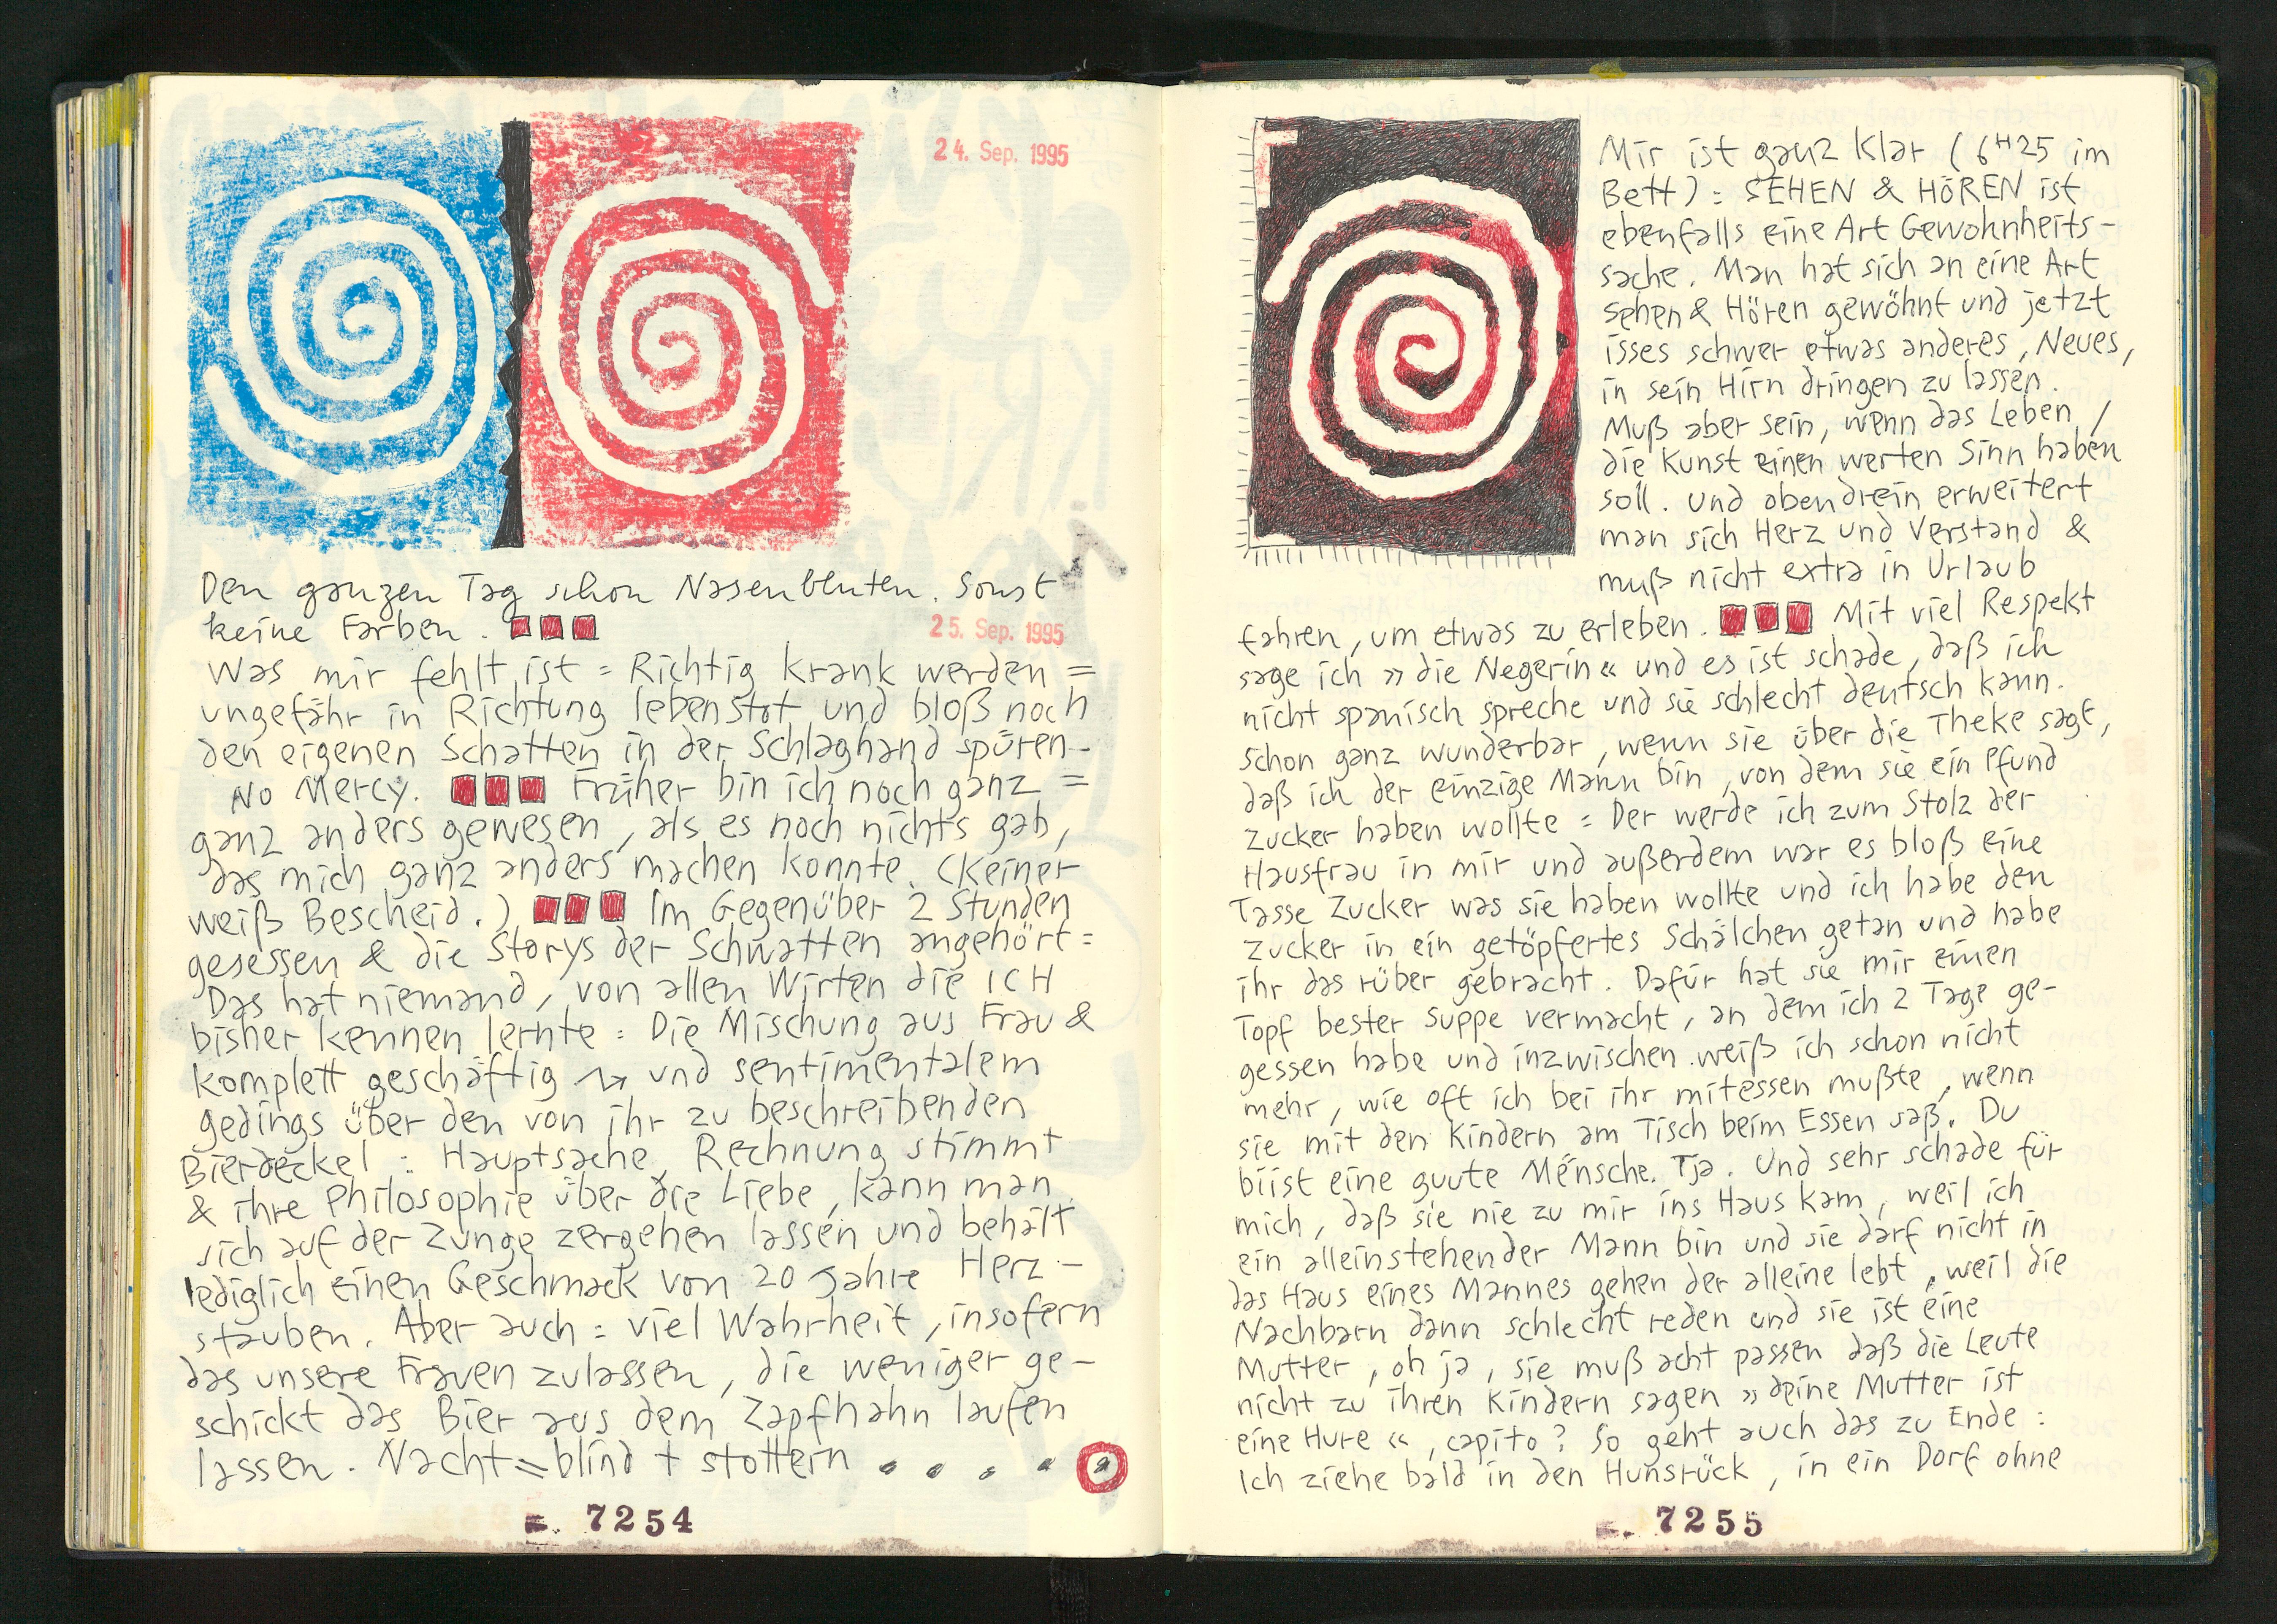 24. Sep. 1995
Den ganzen Tag schon Nasenbluten. Sonst
keine Farben.
25. Sep. 1995
Was mir fehlt ist = Richtig krank werden =
ungefähr in Richtung lebenstot und bloß noch
den eigenen Schatten in der Schlaghand spüren-
No Mercy. Früher bin ich noch ganz =
ganz anders gewesen, als es noch nichts gab,
das mich ganz anders machen konnte. (Keiner
weiß Bescheid.) Im Gegenüber 2 Stunden
gesessen & die Storys der Schwatten angehört =
Das hat niemand, von allen Wirten die ICH
bisher kennen lernte = Die Mischung aus Frau &
komplett geschäftig und sentimentalem
gedings über den von ihr zu beschreibenden
Bierdeckel : Hauptsache, Rechnung stimmt
& ihre Philosophie über die Liebe, kann man
sich auf der Zunge zergehen lassen und behält
lediglich einen Geschmack von 20 Jahre Herz-
stauben. Aber auch = viel Wahrheit, insofern
das unsere Frauen zulassen, die weniger ge-
schickt das Bier aus dem Zapfhahn laufen
lassen. Nacht = blind + stottern . . . .
7254
Mir ist ganz klar (6H25 im
Bett) = SEHEN & HÖREN ist
ebenfalls eine Art Gewohnheits-
sache. Man hat sich an eine Art
sehen & Hören gewöhnt und jetzt
isses schwer etwas anderes, Neues,
in sein Hirn dringen zu lassen.
Muß aber sein, wenn das Leben /
die Kunst einen werten Sinn haben
soll. Und obendrein erweitert
man sich Herz und Verstand &
muß nicht extra in Urlaub
fahren, um etwas zu erleben. Mit viel Respekt
sage ich »die Negerin« und es ist schade, daß ich
nicht spanisch spreche und sie schlecht deutsch kann.
Schon ganz wunderbar, wenn sie über die Theke sagt,
daß ich der einzige Mann bin, von dem sie ein Pfund
Zucker haben wollte = Der werde ich zum Stolz der
Hausfrau in mir und außerdem war es bloß eine
Tasse Zucker was sie haben wollte und ich habe den
Zucker in ein getöpfertes Schälchen getan und habe
ihr das rüber gebracht. Dafür hat sie mir einen
Topf bester Suppe vermacht, an dem ich 2 Tage ge-
gessen habe und inzwischen weiß ich schon nicht
mehr, wie oft ich bei ihr mitessen mußte, wenn
sie mit den Kindern am Tisch beim Essen saß. Du
biist eine guute Ménsche. Tja. Und sehr schade für
mich, daß sie nie zu mir ins Haus kam, weil ich
ein alleinstehender Mann bin und sie darf nicht in
das Haus eines Mannes gehen der alleine lebt, weil die
Nachbarn dann schlecht reden und sie ist eine
Mutter, oh ja, sie muß acht passen daß die Leute
nicht zu ihren Kindern sagen »deine Mutter ist
eine Hure«, capito? So geht auch das zu Ende :
Ich ziehe bald in den Hunsrück, in ein Dorf ohne
7255